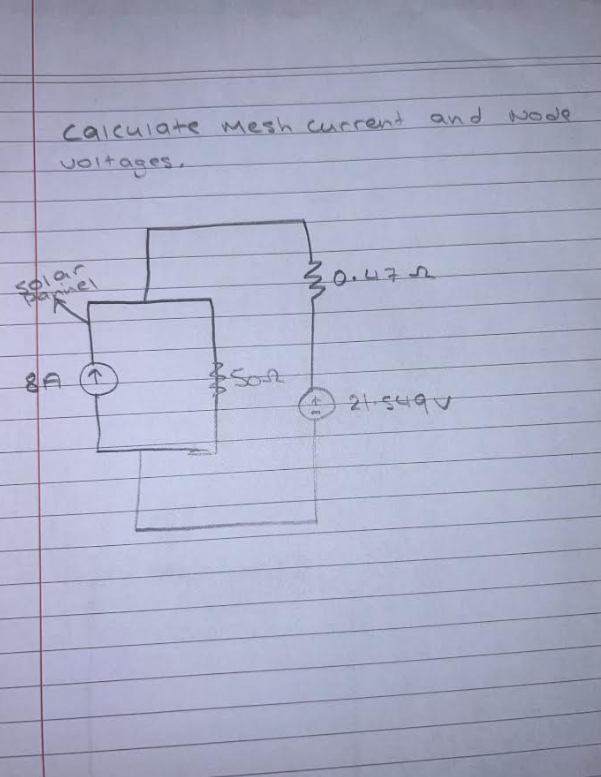 Calculate Mesh current and Node
voltages.
solar
pannel
0.47 Ω
8A
50Ω
21.549 V